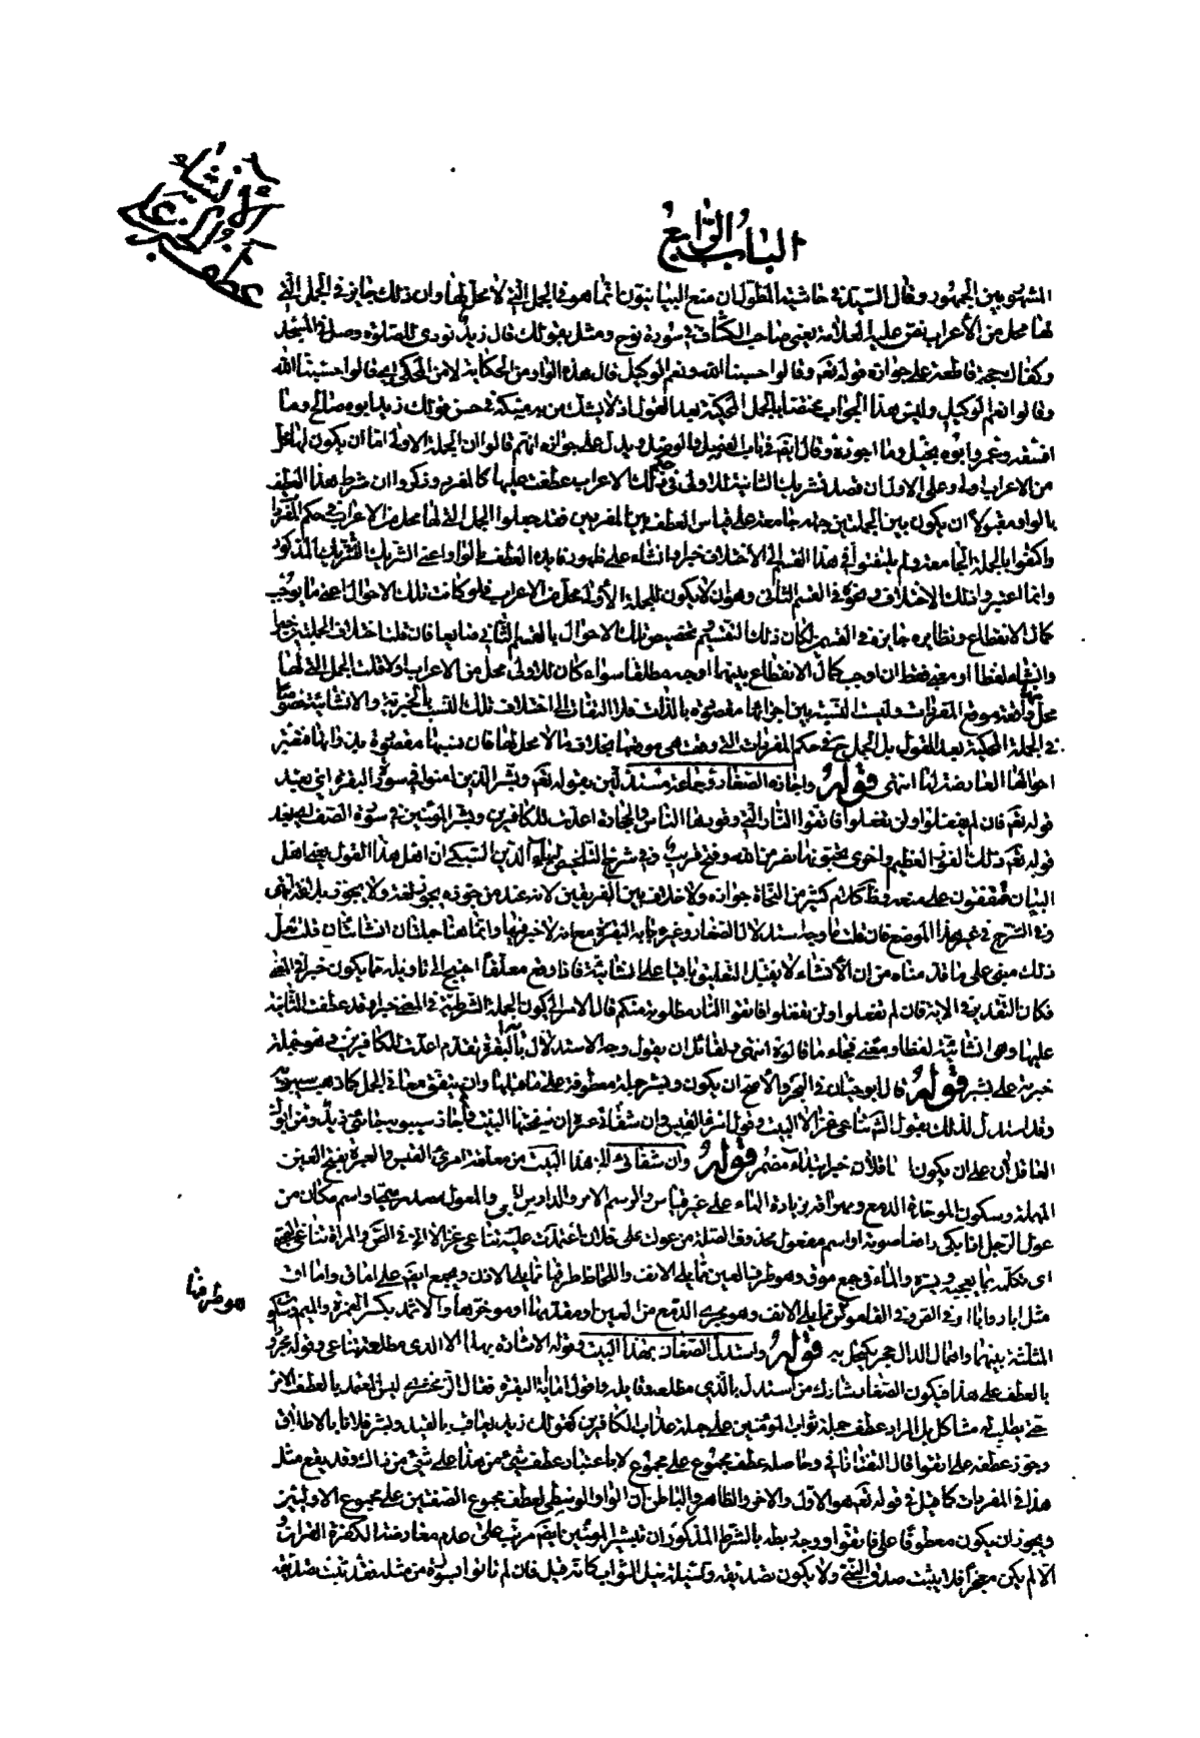 عطف الخبر على الانشاء
الباب الرابع
المشهور بين الجمهور وقال السيد في حاشية المطول ان منع البيانيين انما هو في الجمل التي لا محل لها وان ذلك جايز في الجمل التي
لها محل من الأعراب نص عليه العلامة يعني صاحب الكشاف في سورة نوح ومثل بقولك قال زيد نودى للصلوة وصل في المسجد
وكفاك حجة قاطعة على جوازه قوله تعم وقالوا حسبنا الله ونعم الوكيل قال هذه الواو من الحكاية لا من المحكي اي قالوا حسبنا الله
وقالوا نعم الوكيل وليس هذا الجواب مختصا بالجمل المحكية بعد القول اذ لا يشك من به مسكة في حسن قولك زيد ابوه صالح وما
افسقه وعمرو ابوه بخيل وما اجوده وقال ايضم في باب الفصل والوصل ويدل على جوازه انهم قالوا ان الجملة الاولى اما ان يكون لها محل
من الاعراب اولا وعلى الاول ان قصد تشريك الثانية للاولى في حكم ذلك الاعراب عطفت عليها كالمفرد وذكروا ان شرط هذا العطف
بالواو مقبولا ان يكون بين الجملتين جهة جامعة على قياس العطف بين المفردين فقد جعلوا الجمل التي لها محل من الاعراب في حكم المفردات
واكتفوا بالجهة الجامعة ولم يلتفتوا في هذا القسم الى الاختلاف خبرا وانشاء على ظهور فايدة العطف بالواو اعني التشريك المذكور
وانما اعتبروا ذلك الاختلاف ونحوه في القسم الثاني وهو ان لا يكون للجملة الأولى محل من الاعراب فلو كانت تلك الاحوال اعني ما يوجب
كمال الانقطاع ونظايره جايزة في القسمين لكان ذلك التقسيم وتخصيص تلك الاحوال بالقسم الثاني ضايعا فان قلت اختلاف الجملتين خبرا
وانشاء لفظا او معنى فقط ان اوجب كمال الانقطاع بينهما اوجبه مطلقا سواء كان للاولى محل من الاعراب اولا قلت الجمل التي لها
محل واقعة موقع المفردات وليست النسبة بين اجزائها مقصودة بالذات فلا التفات الى اختلاف تلك النسب بالخبرية والانشائية خصوصا
في الجملة المحكية بعد القول بل الجمل ح في حكم المفردات التي وقعت هي موقعها بخلاف ما لا محل لها فان نسبها مقصودة بذواتها فتعتبر
احوالها العارضة لها انتهى قوله واجازه الصفار وجماعة مستدلين بقوله تعم وبشر الذين امنوا في سورة البقرة اي بعد
قوله تعم فان لم تفعلوا ولن تفعلوا فاتقوا النار التي وقودها الناس والحجارة اعدت للكافرين وبشر المؤمنين في سورة الصف اي بعد
قوله تعم ذلك الفوز العظيم واخرى تحبونها نصر من الله وفتح قريب وفي شرح التلخيص لبهاء الدين السبكي ان اهل هذا القول يعني اهل
البيان متفقون على منعه وظ كلام كثير من النحاة جوازه ولا خلاف بين الفريقين لانه عند من جوزه يجوز لغة ولا يجوز بلاغة انتهى
وفي الشرح في غير هذا الموضع فان قلت ما وجه استدلال الصفار وغيره باية البقرة مع انه لا خبر فيها وانما هنا جملتان انشائيتان قلت لعل
ذلك مبني على ما قدمناه من ان الأنشاء لا يقبل التعليق باقيا على انشائيته فاذا وقع معلقا احتيج الى تاويله بما يكون خبرا في المعنى
فكان التقدير في الاية فان لم تفعلوا ولن تفعلوا فاتقوا النار مطلوبة منكم قال الامر الى كون الجملة الشرطية في المعنى خبرا وقد عطفت الثانية
عليها وهي انشائية لفظا ومعنى فجاء ما قالوه انتهى ولقائل ان يقول وجه الاستدلال بآية البقرة تقدم اعدت للكافرين وهو جملة
خبرية على بشر قوله قال ابو حيان في البحر والأصح ان يكون وبشر جملة معطوفة على ما قبلها وان لم يتفق معاني الجمل كما ذهب سيبويه
وقد استدل لذلك بقول الشاعر تناغى غزالا البيت وقول امرئ القيس وان شفائي عبرة ان سفحتها البيت واجاز سيبويه جاءني زيد ومن ابوك
العاقلان على ان يكون العاقلان خبر ابتداء مضمر قوله وان شفائي الخ هذا البيت من معلقة امرئ القيس والعبرة بفتح العين
المهملة وسكون الموحدة الدمع ومهراقة بزيادة الهاء على غير قياس والرسم الاثر والدارس البالي والمعول مصدر ميمي او اسم مكان من
عول الرجل اذا بكى رافعا صوته او اسم مفعول محذوف الصلة من عولت على فلان اعتمدت عليه تناغى غزالا الخ في الصحاح المراة تناغى الصبي
اى تكلمه بما يعجبه ويسره والماقي جمع موق وهو طرف العين مما يلي الانف واللحاظ طرفها مما يلي الاذن ويجمع ايضم على اماق واماق
مثل ابار وابار وفي القاموس مما يلي الانف وهو مجرى الدمع من العين او مقدمها او مؤخرها والاثمد بكسر الهمزة والميم وسكون
هو طرفها
المثلثة بينهما واهمال الدال حجر يكتحل به قوله واستدل الصفار بهذا البيت وقوله الاشارة بهذا الا الذي مطلعه تناغى وقوله
بالعطف على هذا فيكون الصفار شارك من استدل بالذي مطلعه وقايله واقول اما اية البقرة فقال الزمخشري ليس المعتمد بالعطف الامر
حتى يطلب له مشاكل بل المراد عطف جملة ثواب المؤمنين على جملة عذاب الكافرين كقولك زيد يعاقب بالقيد وبشر فلانا بالاطلاق
وجوز عطفه على اتقوا قال التفتازاني وحاصله عطف مجموع على مجموع لا باعتبار عطف شيء من هذا على شيء من ذاك وقد يقع مثل
هذا في المفردات كما قيل في قوله تعم هو الاول والاخر والظاهر والباطن ان الواو الوسطى لعطف مجموع الصفتين على مجموع الاوليين
ويجوز ان يكون معطوفا على فاتقوا ووجه ربطه بالشرط المذكور ان تبشير المؤمنين ايضم مرتب على عدم معارضة الكفرة القرآن و
الا لم يكن معجزا فلا يثبت صدق النبي ولا يكون تصديقه وسيلة نيل الثواب كانه قيل فان لم تاتوا بسورة من مثله فقد ثبت صدقه